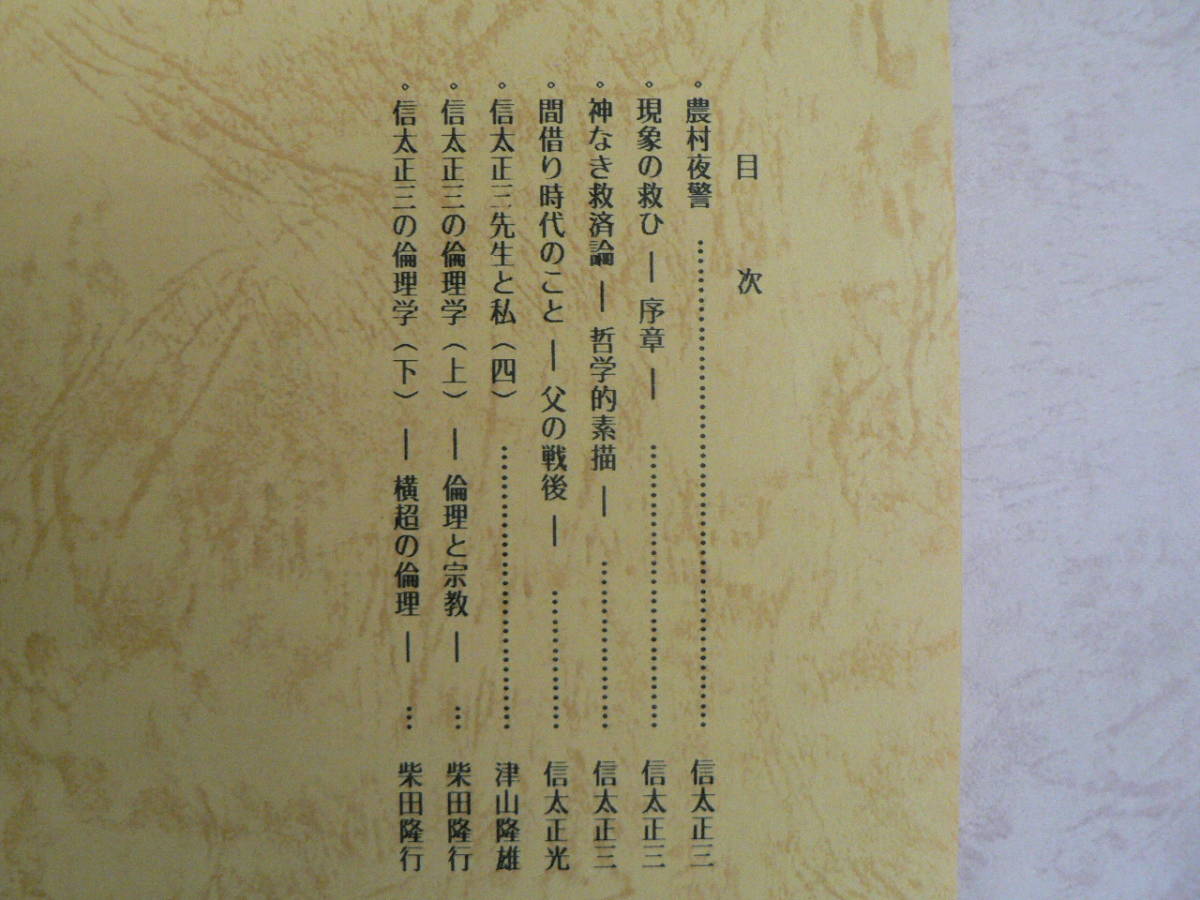 目次
。農村夜警 ……………………………………… 信太正三
。現象の救ひ ― 序章 ― …………………… 信太正三
。神なき救済論 ― 哲学的素描 ― ………… 信太正三
。間借り時代のこと ― 父の戦後 ― ……… 信太正光
。信太正三先生と私(四) …………………… 津山隆雄
。信太正三の倫理学(上) ― 倫理と宗教 ― … 柴田隆行
。信太正三の倫理学(下) ― 横超の倫理 ― … 柴田隆行